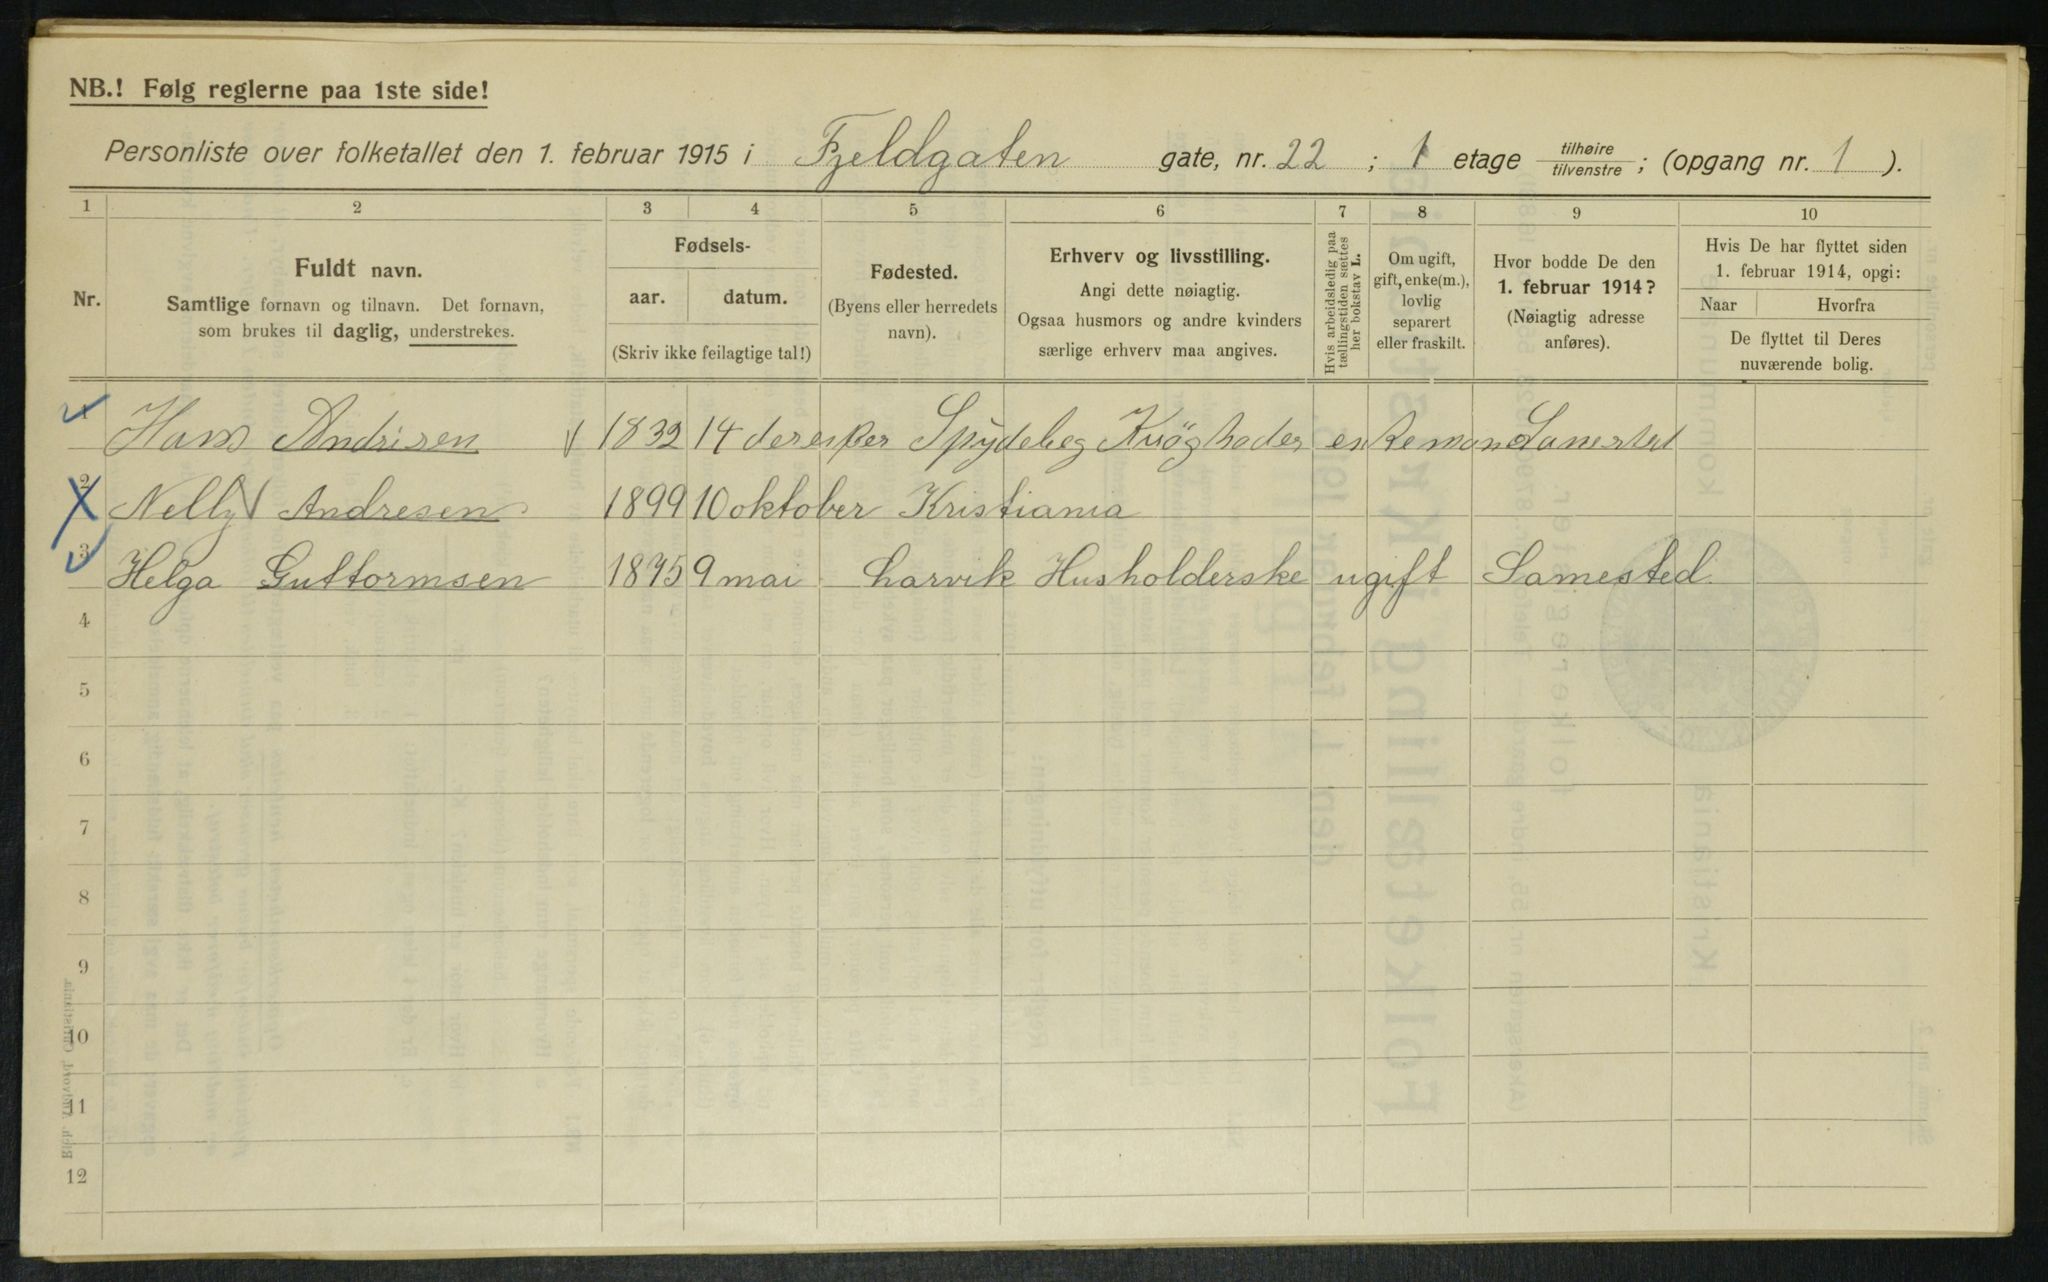 NB.! Følg reglerne paa 1ste side!
Personliste over folketallet den 1. februar 1915 i Fjeldgaten gate, nr. 22 ; 1 etage tilhøire tilvenstre ; (opgang nr. 1 ).
1 2 3 4 5 6 7 8 9 10
Nr.
Fuldt navn.
Samtlige fornavn og tilnavn. Det fornavn,
som brukes til daglig, understrekes.
Fødsels-
aar. datum.
(Skriv ikke feilagtige tal!)
Fødested.
(Byens eller herredets
navn).
Erhverv og livsstilling.
Angi dette nøiagtig.
Ogsaa husmors og andre kvinders
særlige erhverv maa angives.
Hvis arbeidsledig paa
tællingstiden sættes
her bokstav L.
Om ugift,
gift, enke(m.),
lovlig
separert
eller fraskilt.
Hvor bodde De den
1. februar 1914?
(Nøiagtig adresse
anføres).
Hvis De har flyttet siden
1. februar 1914, opgi:
Naar Hvorfra
De flyttet til Deres
nuværende bolig.
1 Hans Andrisen 1832 14 Spydeberg enkeman
2 Nelly Andresen 1899 10 oktober Kristiania
3 Helga Guttormsen 1875 9 mai Larvik Husholderske ugift Samested
4
5
6
7
8
9
10
11
12
Rich. Andvord, Christiania.